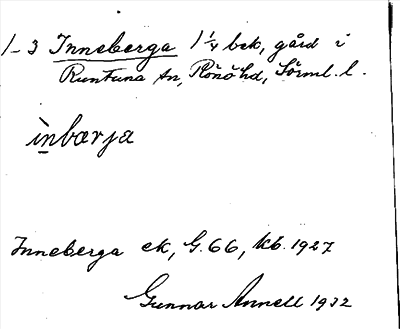 1-3 Inneberga 1 1/4 bek, gård i
Runtuna sn, Rönö hd, Sörml. l.
ìnbærja
Inneberga ek, G. 66, Kb. 1927
Gunnar Annell 1932